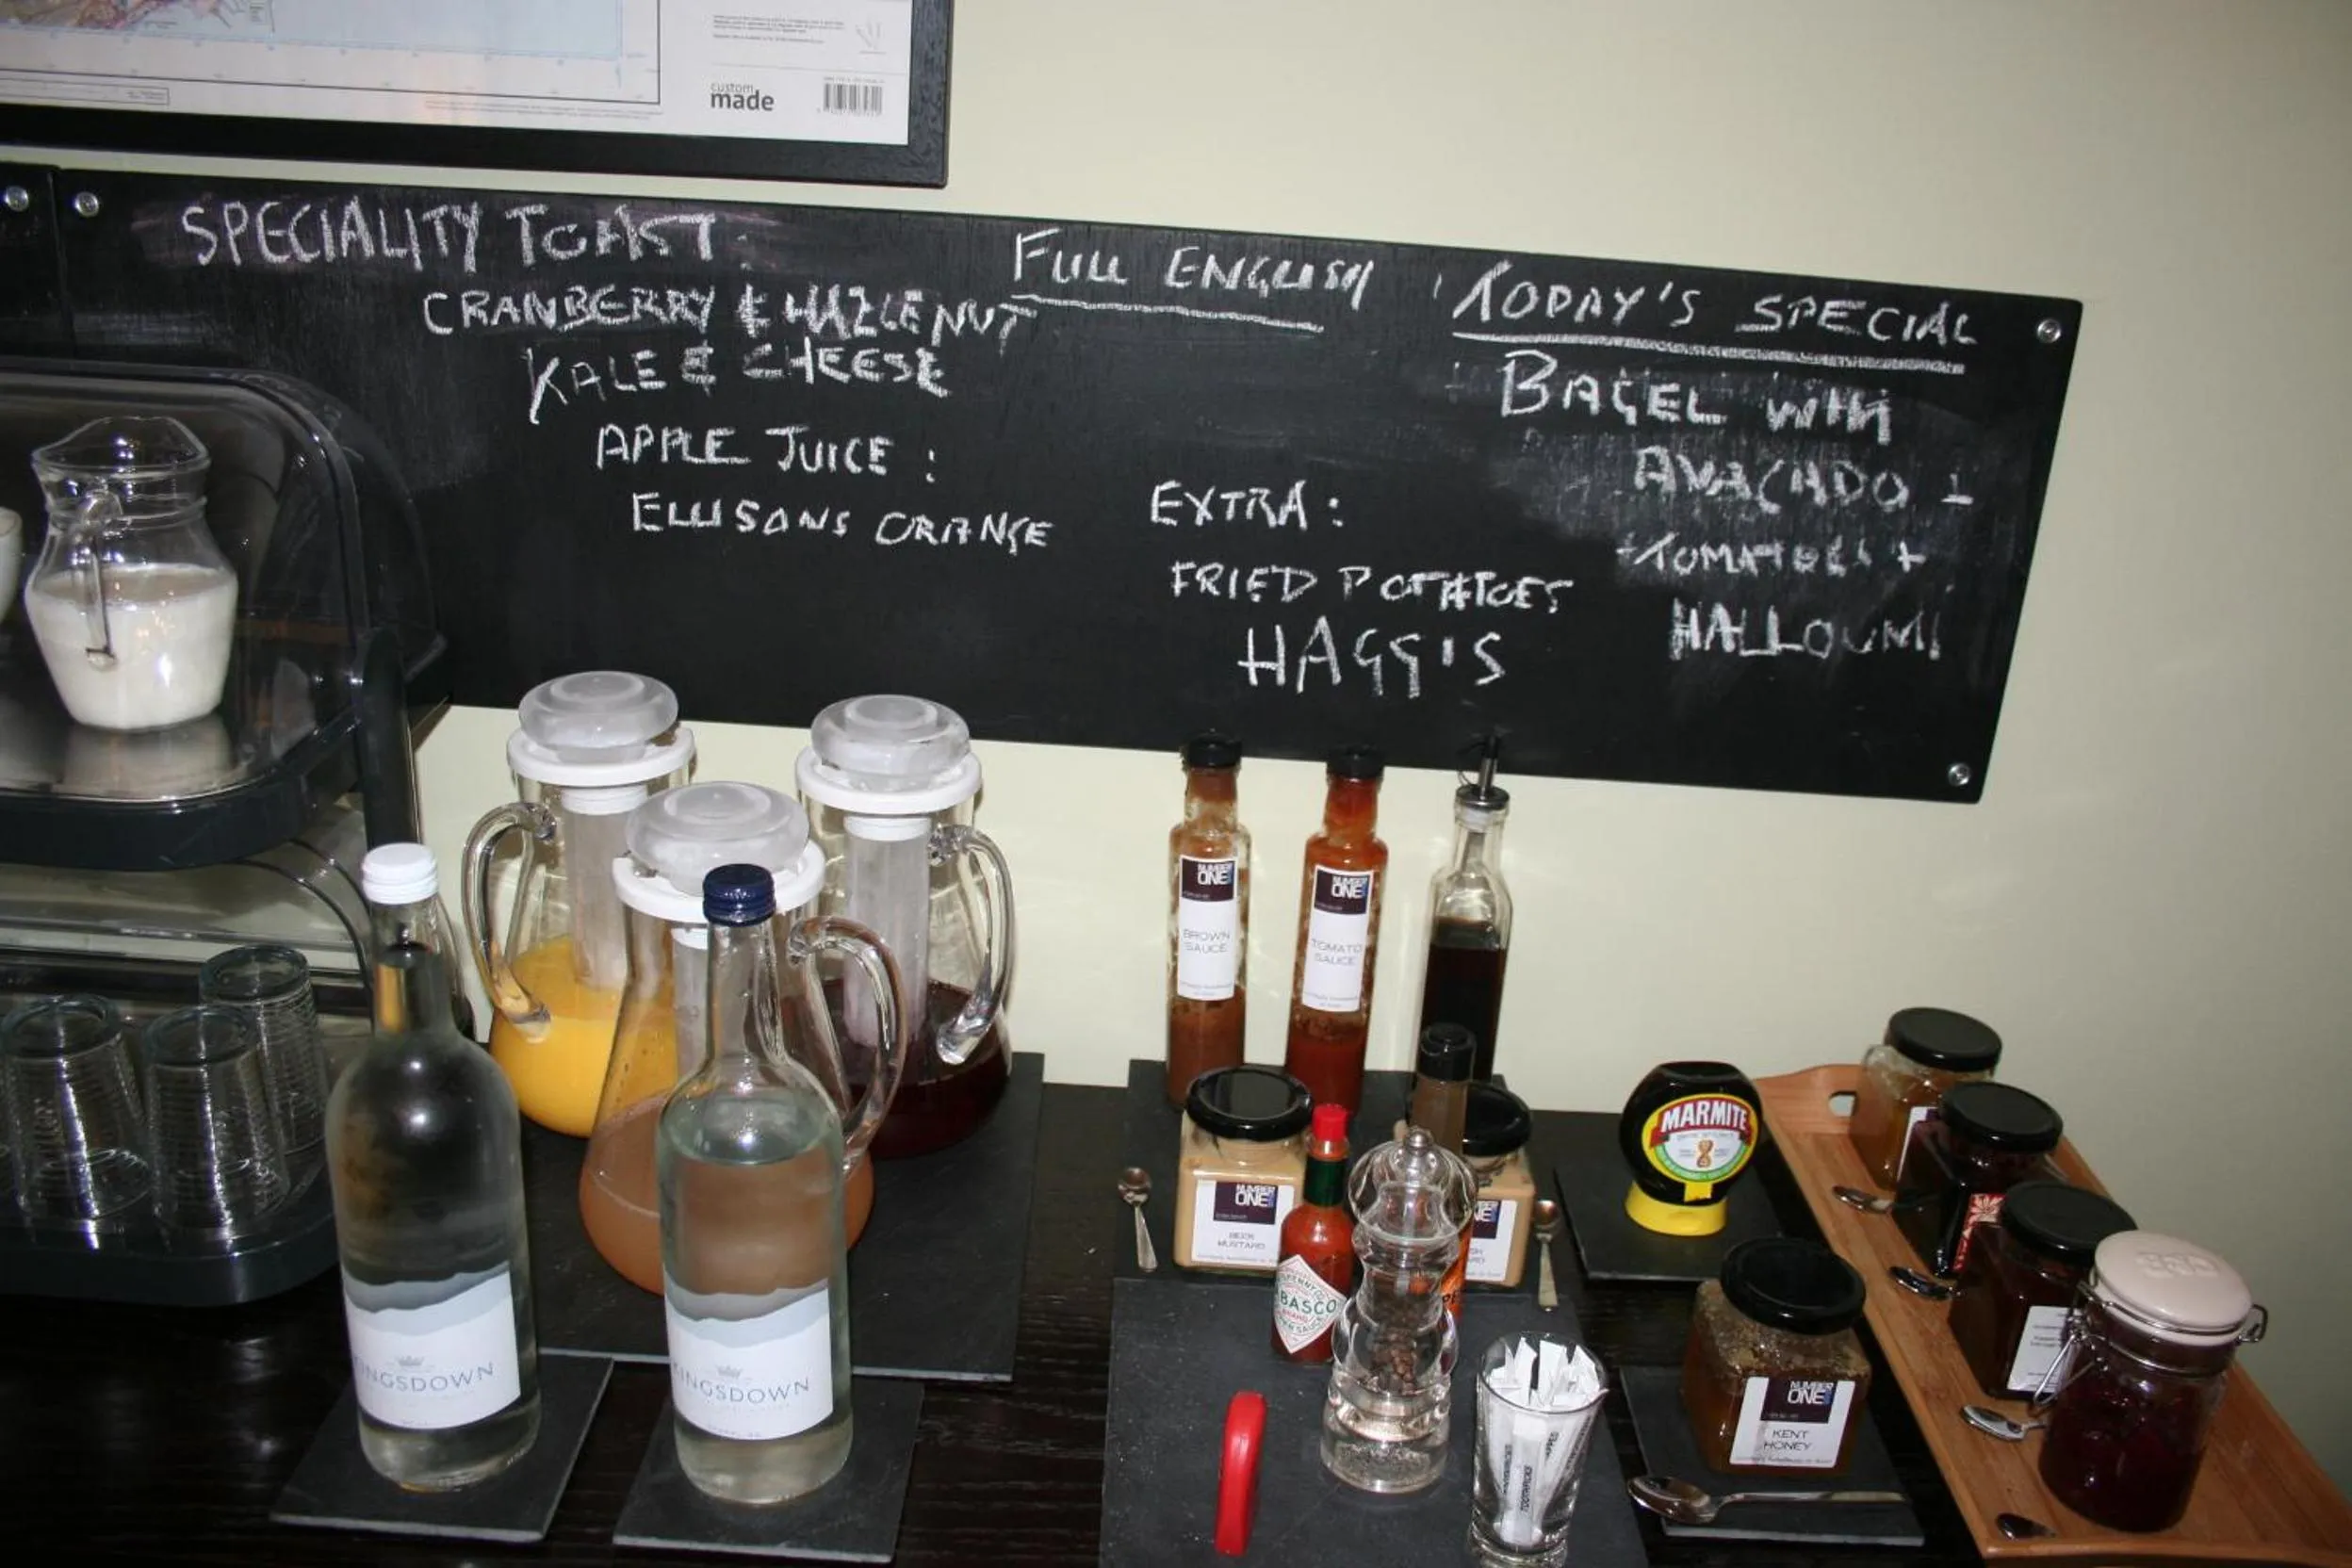 custom
made
SPECIALITY TOAST:
CRANBERRY & HAZLENUT
KALE & CHEESE
APPLE JUICE:
ELLISONS ORANGE
FULL ENGLISH
EXTRA:
FRIED POTATOES
HAGGIS
TODAY'S SPECIAL
BAGEL WITH
AVACADO +
TOMATOES +
HALLOUMI
NUMBER
ONE
BROWN
SAUCE
NUMBER
ONE
TOMATO
SAUCE
MARMITE
NUMBER
ONE
MUSTARD
BASCO
KINGSDOWN
KINGSDOWN
NUMBER
ONE
KENT
HONEY
TOOTHPICKS